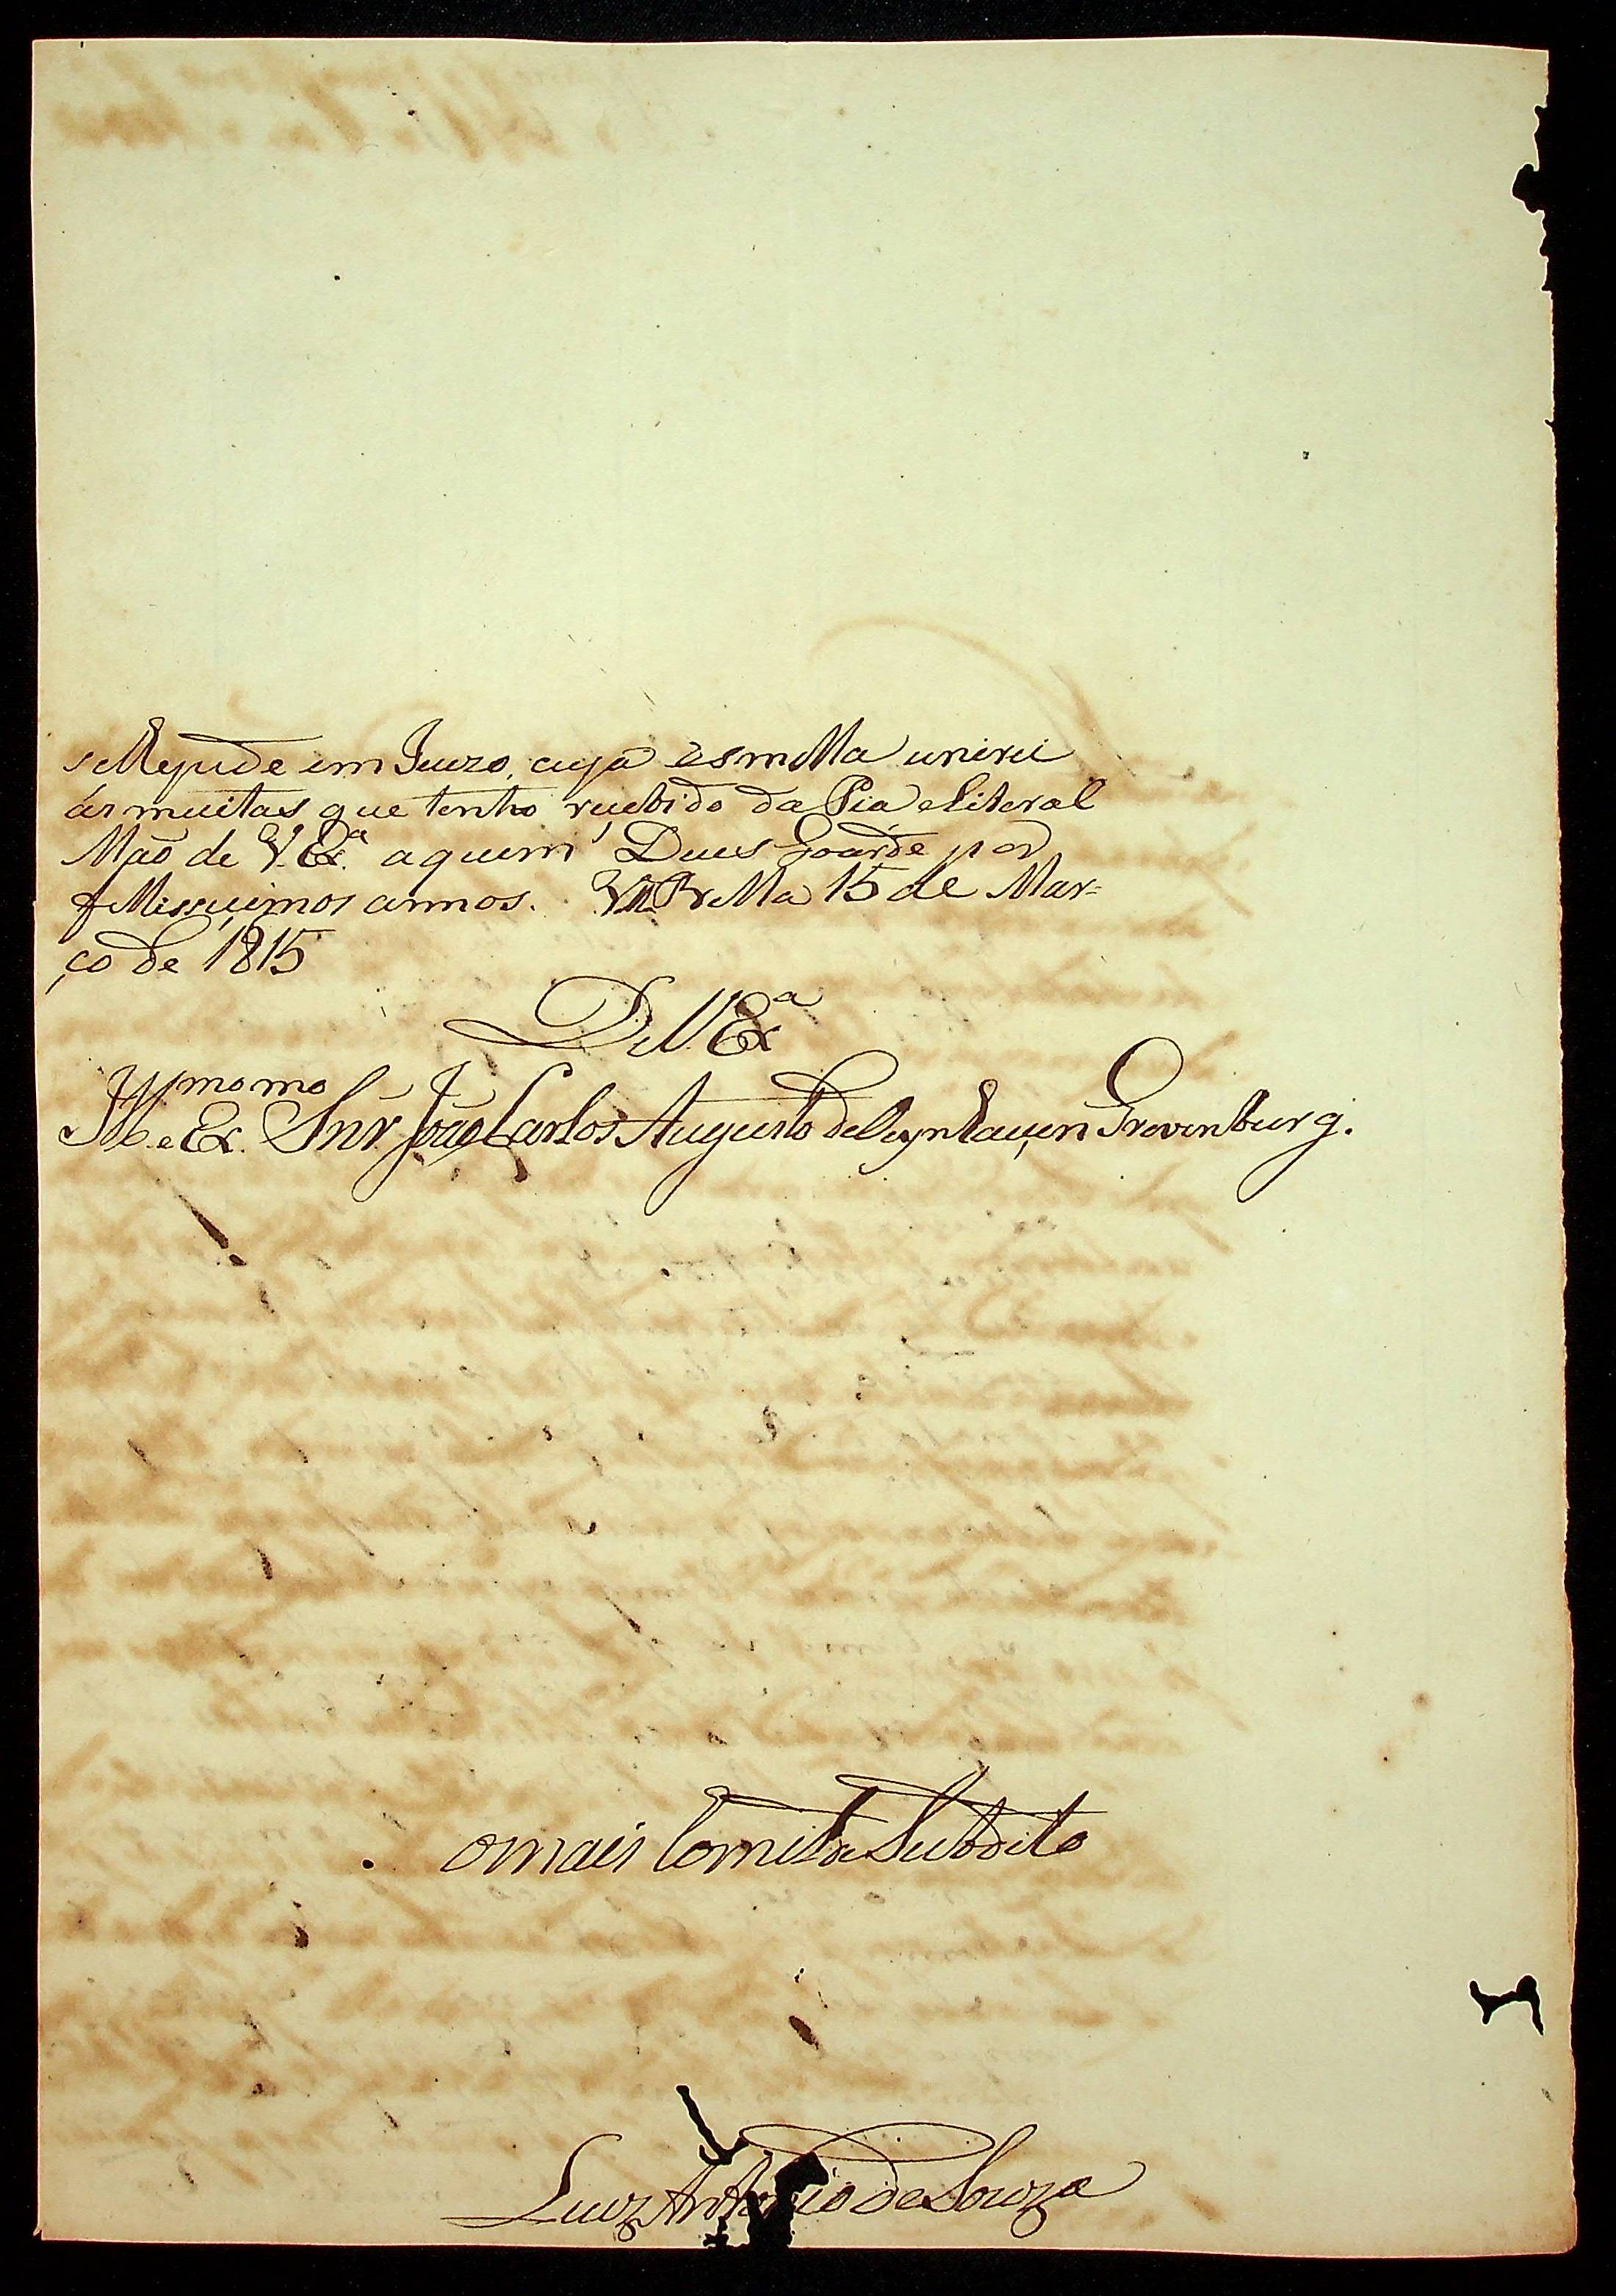 se Me pede em Juizo, cuja esmolla unirei
ás muitas que tenho recebido da Pia e Liberal
Mão de V. Ex.ª a quem Deus Goarde por
feLissicimos annos. Villa 15 de Mar=
ço de 1815
De V Exª
Ill.mo e Ex.mo Snr. João Carlos Augusto de Oeynhausen Grevenburg.
o mais Subdito
Luiz Antonio de Souza